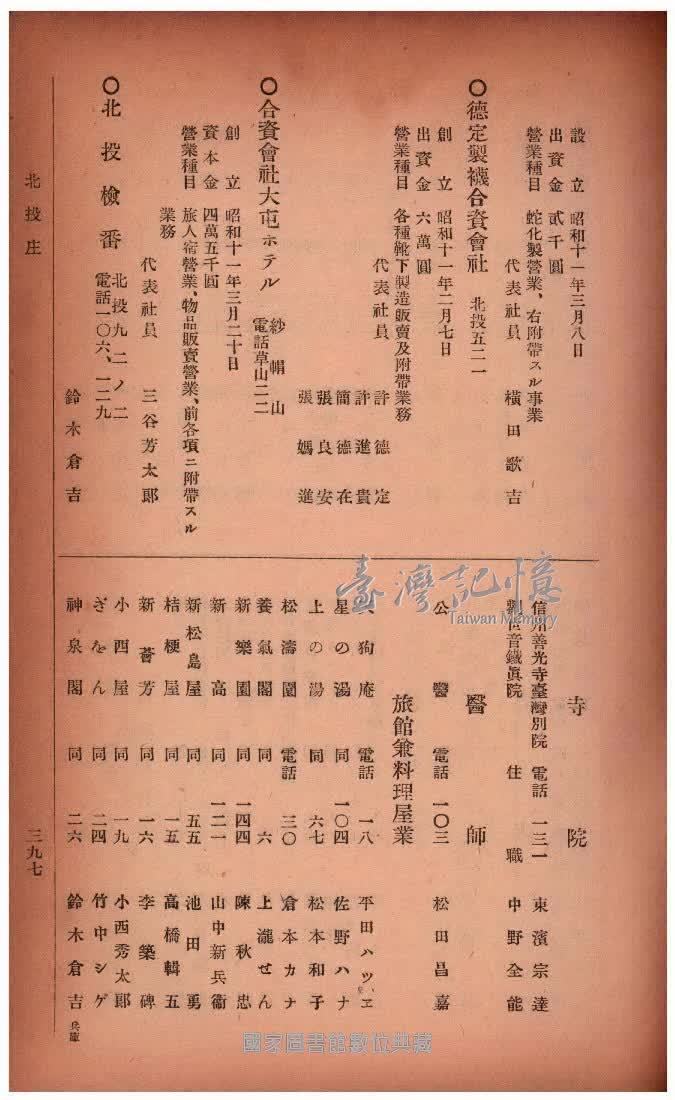 設立 昭和十一年三月八日
出資金 貳千圓
營業種目 蛇化製營業、右附帶スル事業
代表社員 橫田歌吉
〇德定製襪合資會社 北投五二一
創立 昭和十一年二月七日
出資金 六萬圓
營業種目 各種靴下製造販賣及附帶業務
代表社員 許德定
許進貴
簡德在
張良安
張媽進
〇合資會社大屯ホテル 紗帽山
電話草山二二
創立 昭和十一年三月二十日
資本金 四萬五千圓
營業種目 旅人宿營業、物品販賣營業、前各項ニ附帶スル
業務
代表社員 三谷芳太郎
〇北投檢番 北投九二ノ二
電話一〇六、一二九
鈴木倉吉
寺院
信州善光寺臺灣別院 電話 一三一 東濱宗達
觀世音鐵眞院 住職 中野全能
醫師
公醫 電話 一〇三 松田昌嘉
旅館兼料理屋業
狗庵 電話 一八 平田ハツヱ
星の湯 同 一〇四 佐野ハナ
上の湯 同 六七 松本和子
松濤園 電話 三〇 倉本カナ
養氣閣 同 六 上瀧ぜん
新樂園 同 一四四 陳秋忠
新高 同 一二一 山中新兵衞
新松島屋 同 五五 池田勇
桔梗屋 同 一五 高橋輯五
新薈芳 同 一六 李築碑
小西屋 同 一九 小西秀太郎
ぎをん 同 二四 竹中シゲ
神泉閣 同 二六 鈴木倉吉 兵庫
北投庄
三九七
臺灣記憶
Taiwan Memory
國家圖書館數位典藏